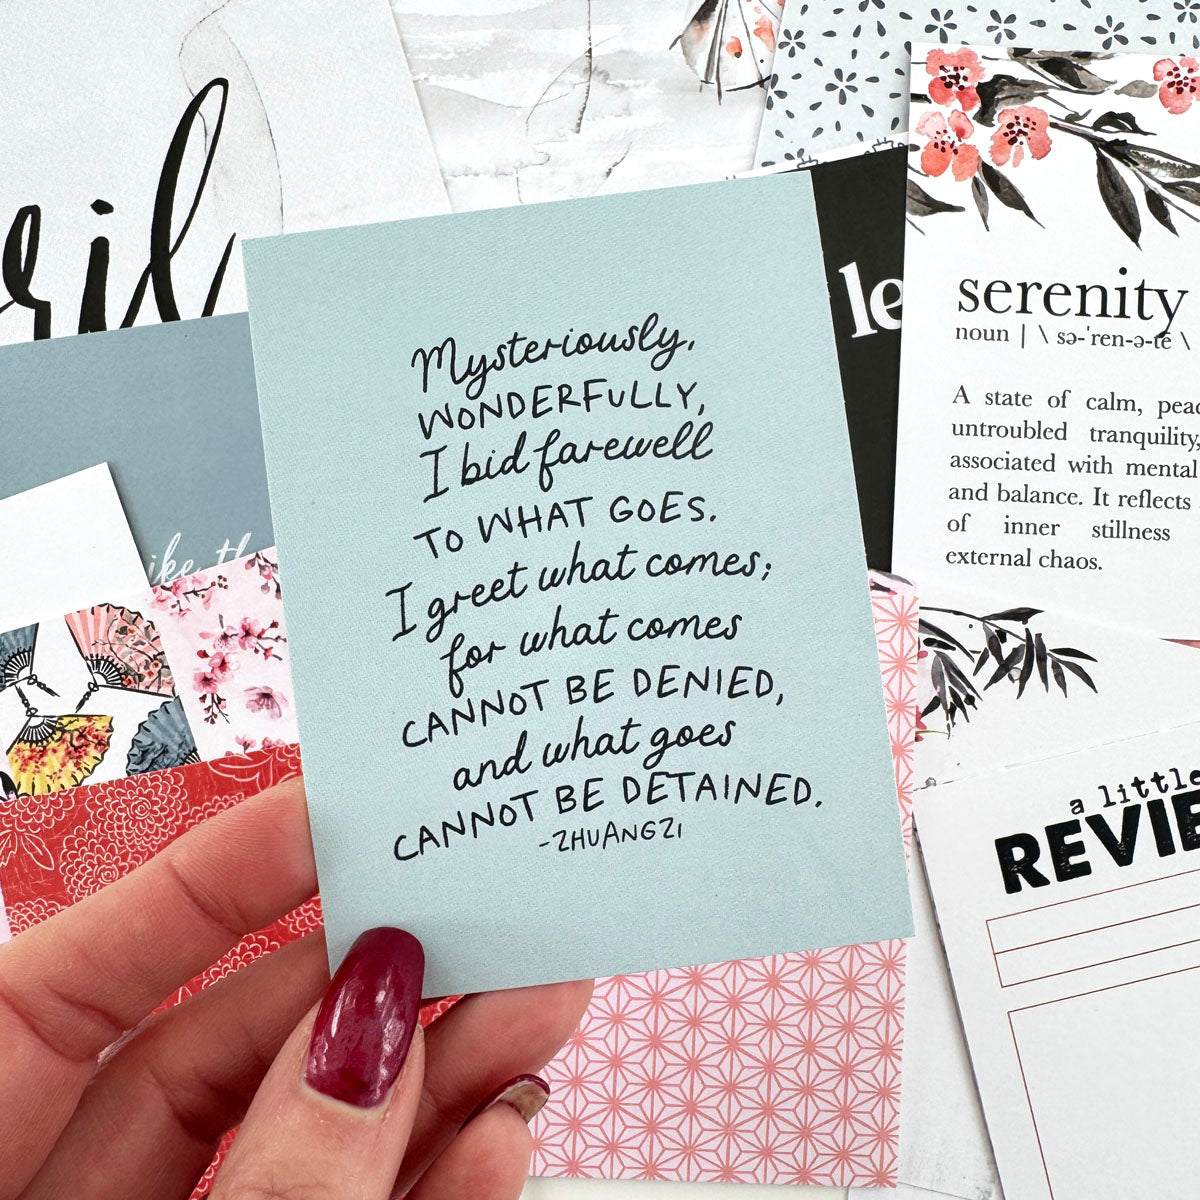 Mysteriously,
WONDERFULLY,
I bid farewell
TO WHAT GOES.
I greet what comes;
for what comes
CANNOT BE DENIED,
and what goes
CANNOT BE DETAINED.
-ZHUANGZI
serenity
noun | \ sə-ˈren-ə-tē \
A state of calm,
untroubled tranquility,
associated with mental
and balance. It reflects
of inner stillness
external chaos.
a little